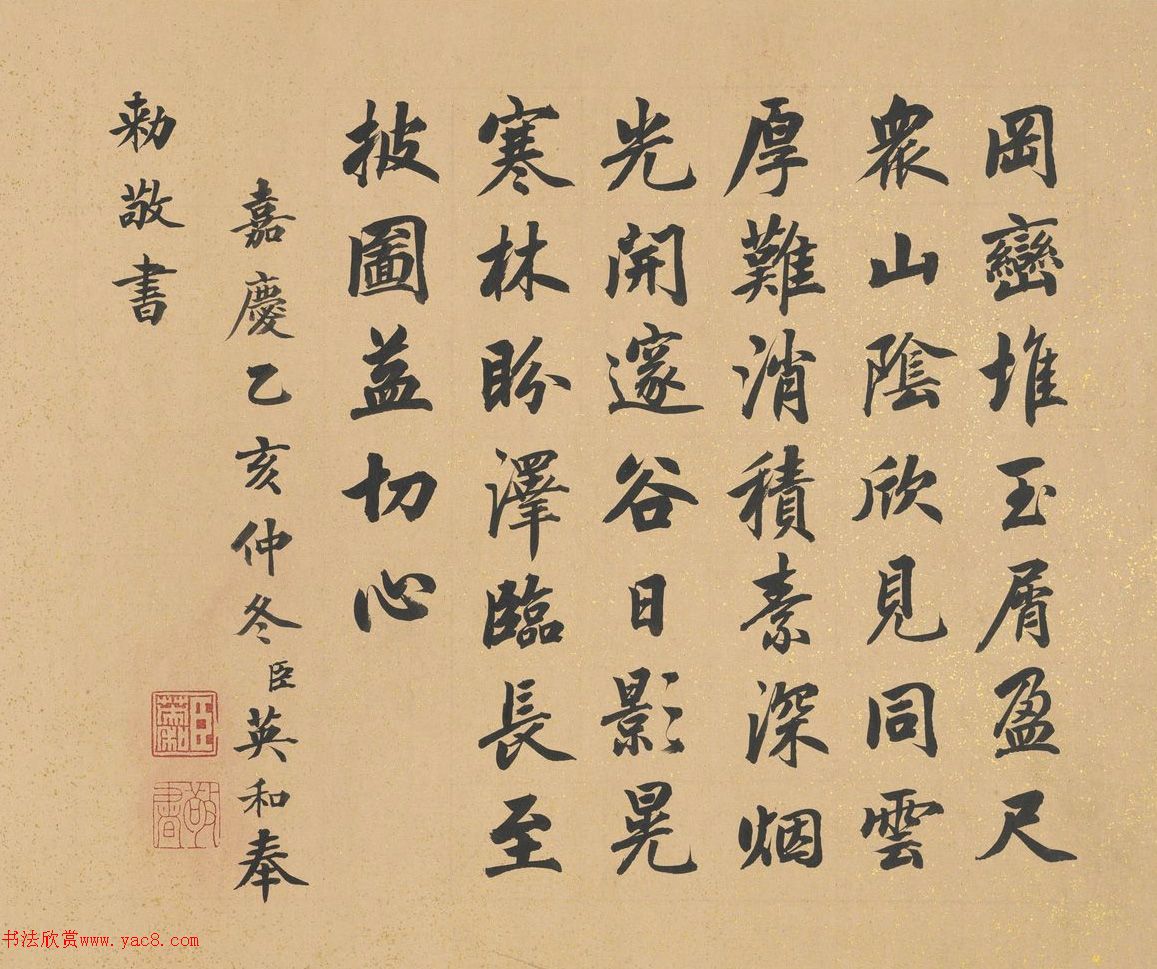 岡巒堆玉屑盈尺
衆山陰欣見同雲
厚難消積素深烟
光開邃谷日影晃
寒林盼澤臨長至
披圖益切心
嘉慶乙亥仲冬臣英和奉
勅敬書
敬書
书法欣赏www.yac8.com